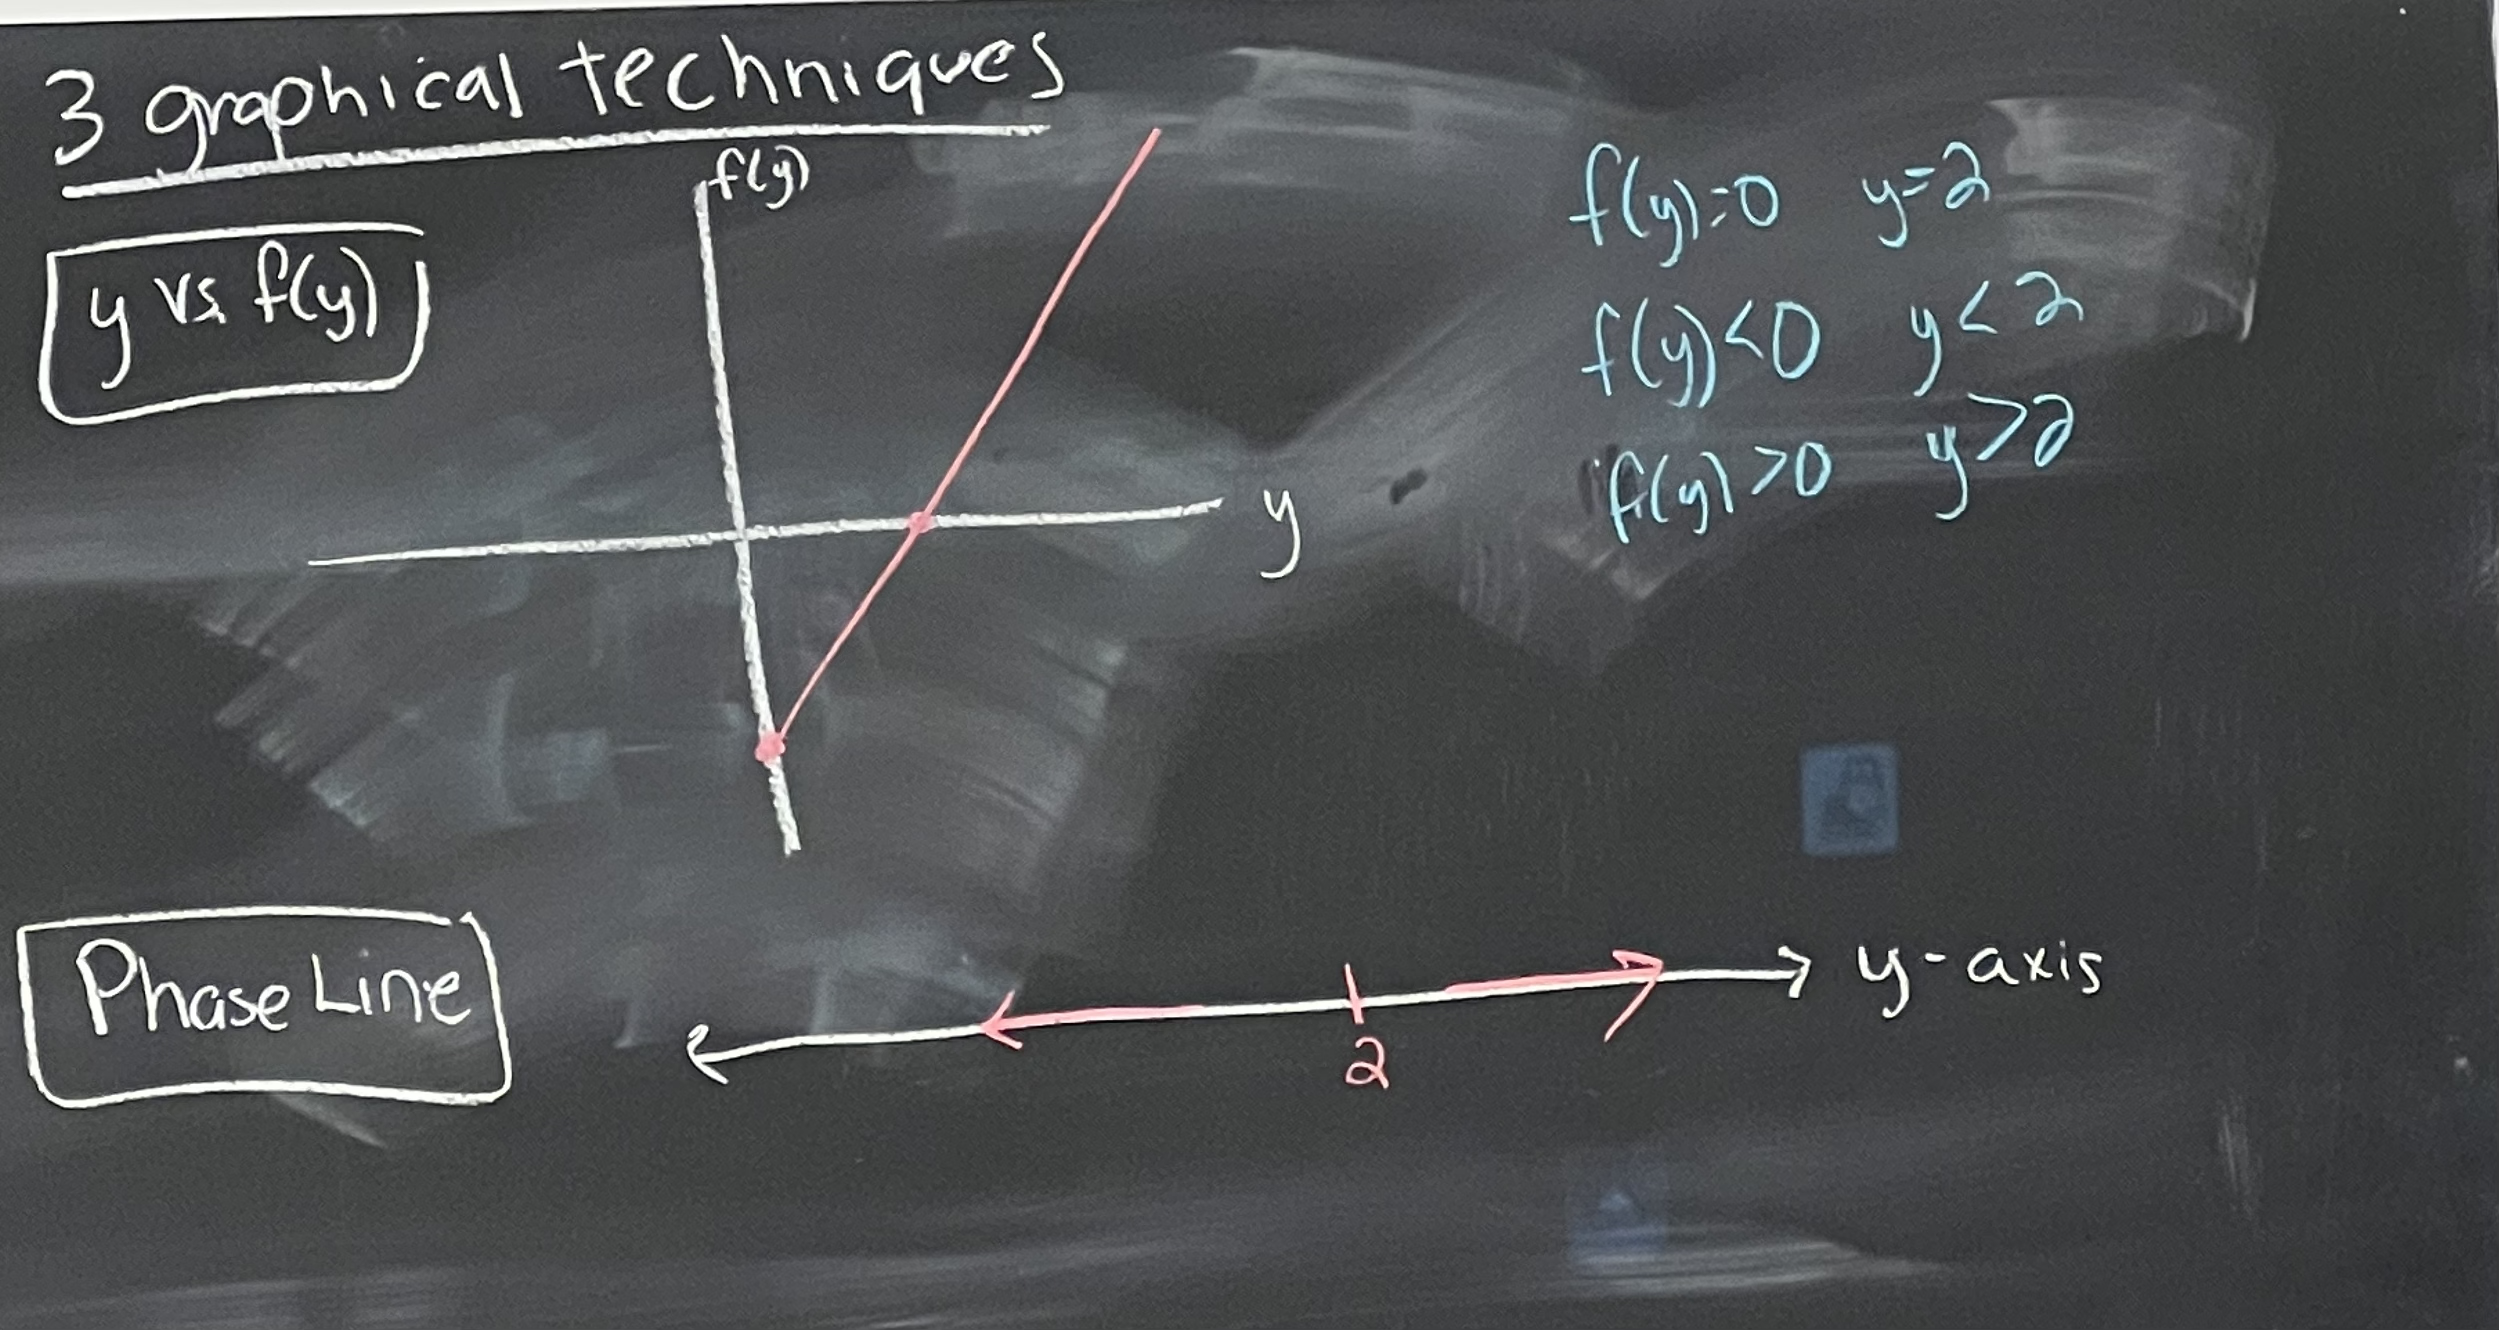 3 graphical techniques
f(y)
y vs f(y)
y
f(y)=0 y=2
f(y)<0 y<2
f(y)>0 y>2
Phase Line
y-axis
2